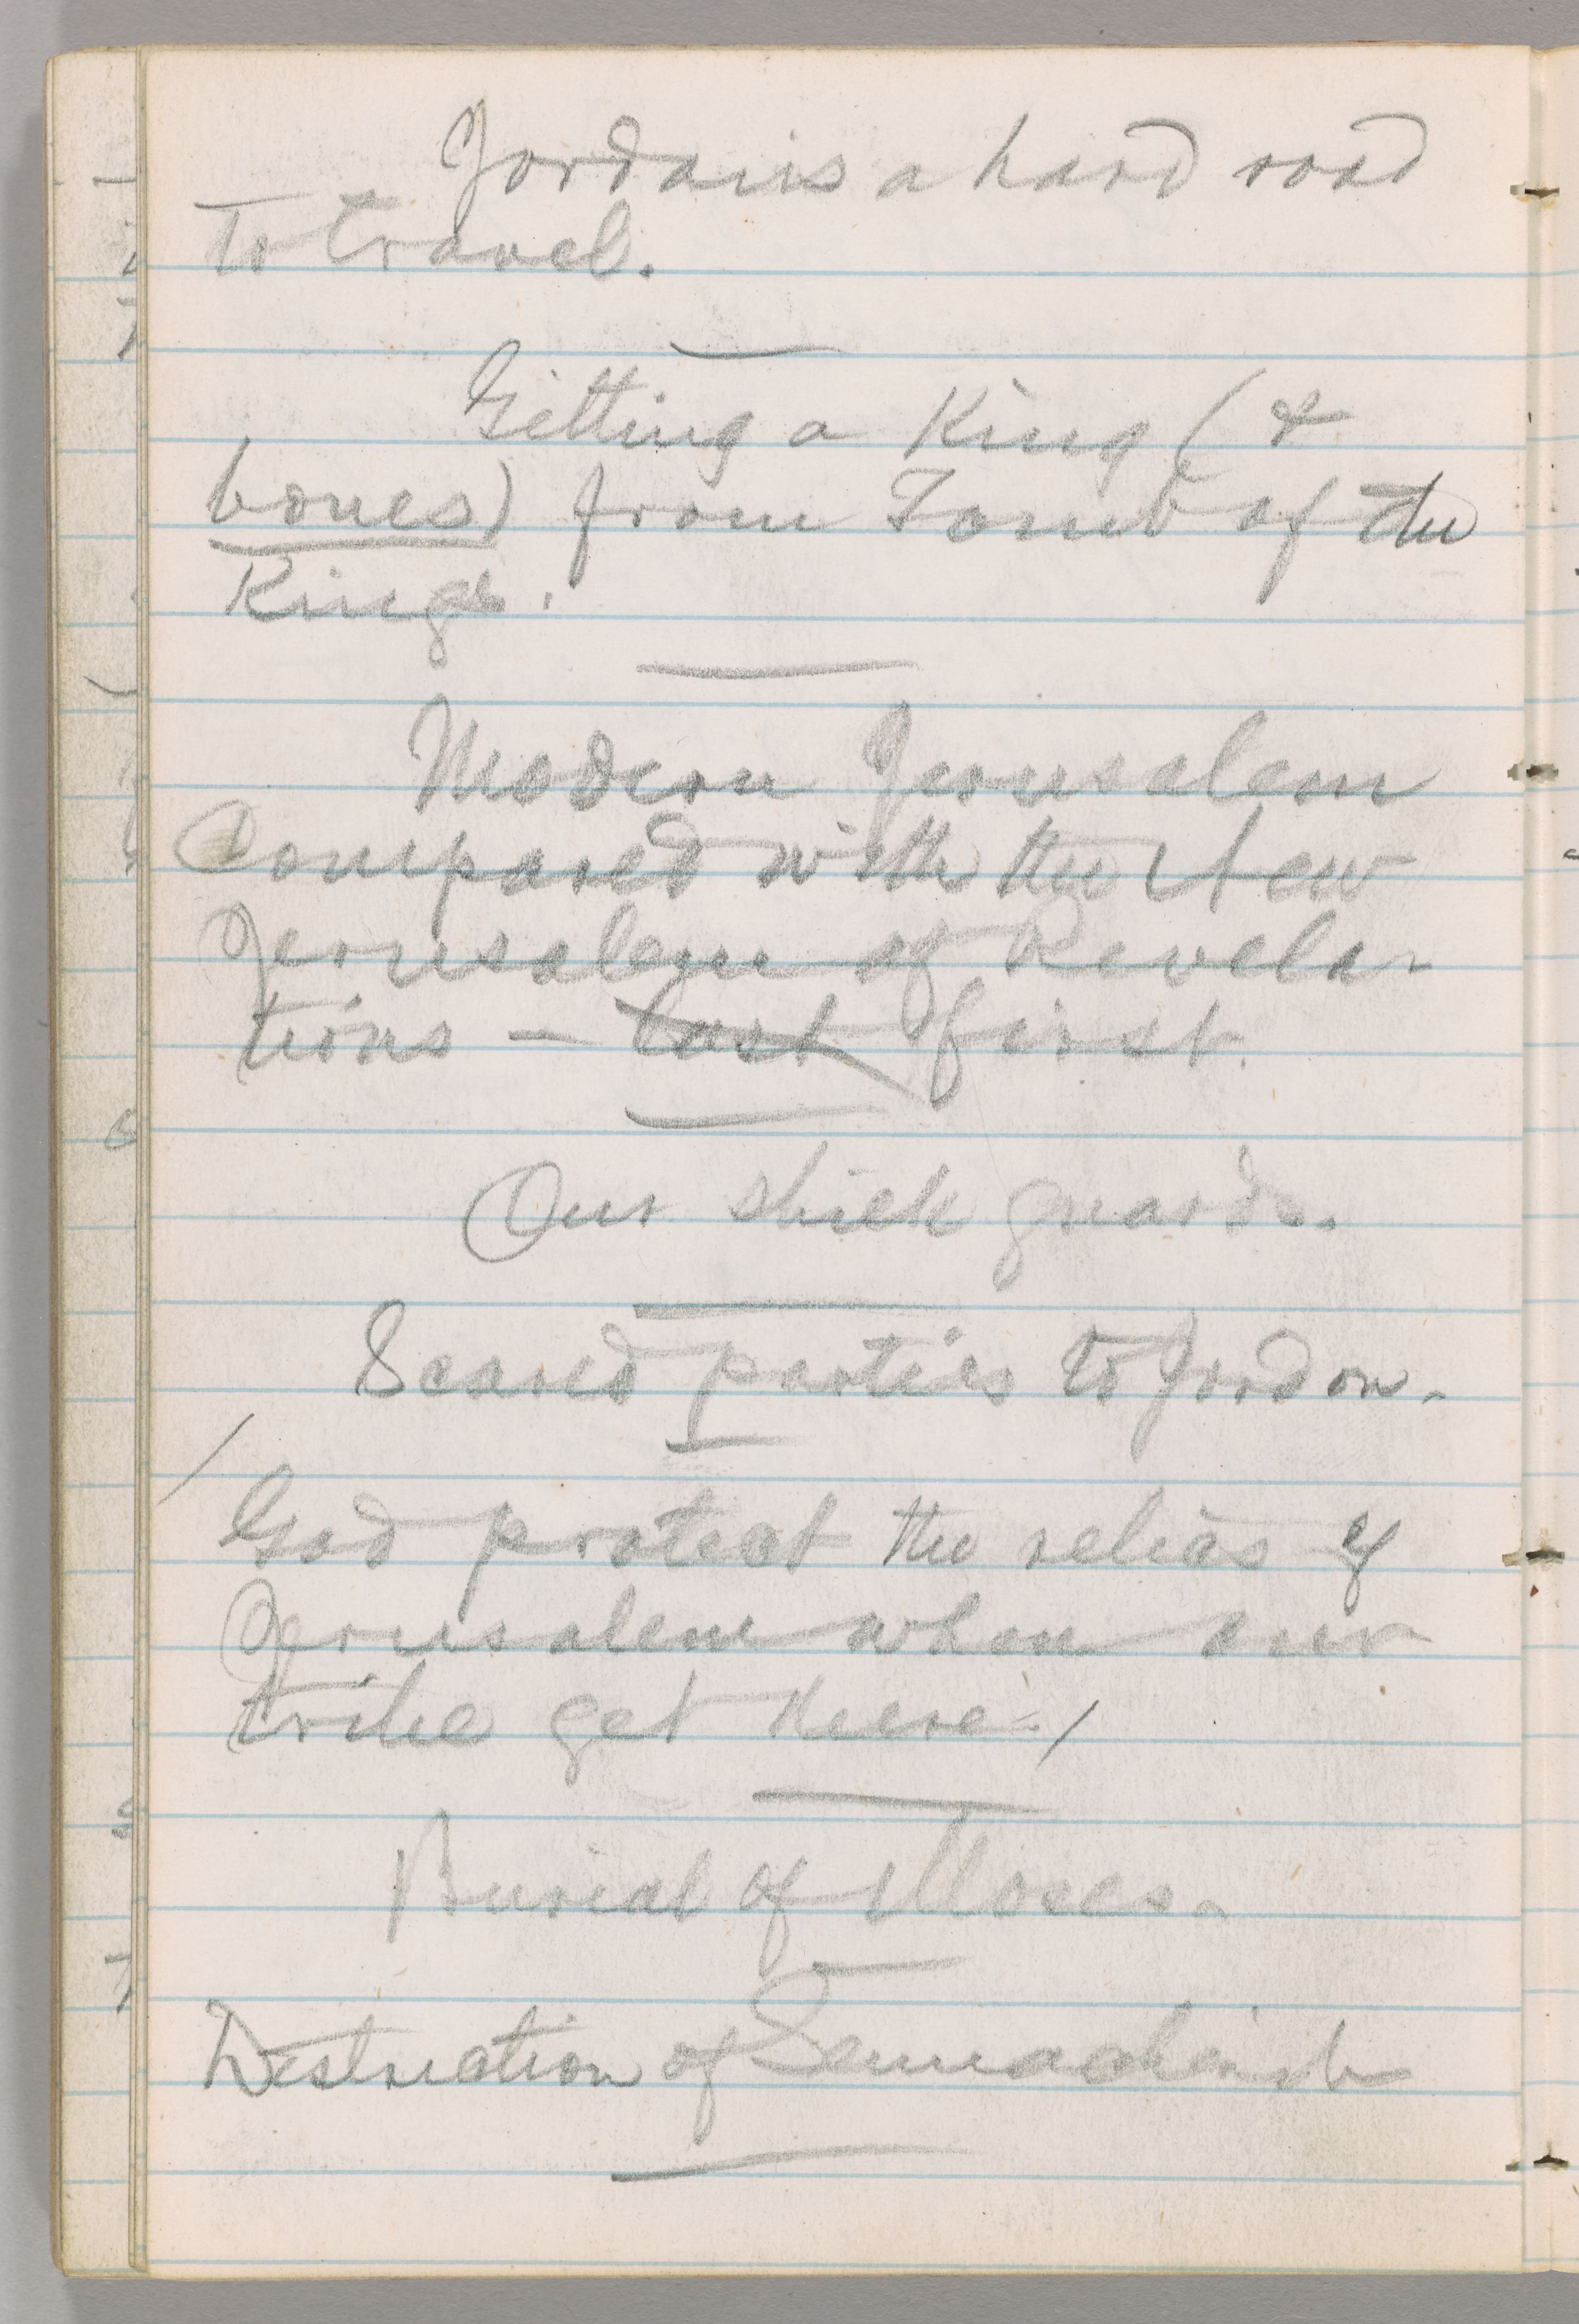 Jordan is a hard road
to travel.
Getting a King (&
bones) from Tomb of the
Kings.
Modern Jerusalem
Compared with the New
Jerusalem of Revela-
tions — last first.
Our shiek guards.
Scared parties to Jordon.
/
God protect the relics of
Jerusalem when our
tribe get there. /
Burial of Moses.
Destruction of Sennacherib